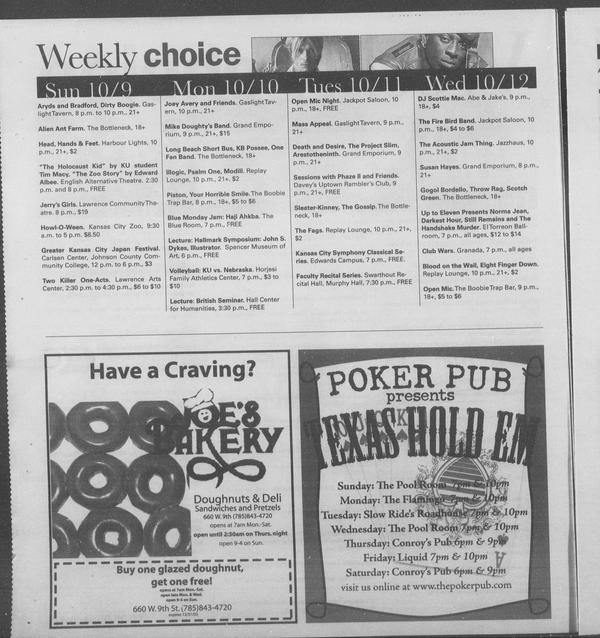 Weekly choice
Sun 10/9
Aryds and Bradford, Dirty Boogie. Gas-
lightTavern, 8 p.m. to 10 p.m., 21+
Alien Ant Farm. The Bottleneck, 18+
Head, Hands & Feet. Harbour Lights, 10
p.m., 21+, $2
"The Holocaust Kid" by KU student
Tim Macy, "The Zoo Story" by Edward
Albee. English Alternative Theatre. 2:30
p.m. and 8 p.m., FREE
Jerry's Girls. Lawrence CommunityThe-
atre. 8 p.m., $19
Howl-O-Ween. Kansas City Zoo, 9:30
a.m. to 5 p.m. $8.50
Greater Kansas City Japan Festival.
Carlsen Center, Johnson County Com-
munity College, 12 p.m. to 6 p.m., $3
Two Killer One-Acts. Lawrence Arts
Center, 2:30 p.m. to 4:30 p.m., $6 to $10
Mon 10/10
Joey Avery and Friends. GaslightTav-
ern, 10 p.m., 21+
Mike Doughty's Band. Grand Empo-
rium, 9 p.m., 21+, $15
Long Beach Short Bus, KB Posee, One
Fan Band. The Bottleneck, 18+
Illogic, Psalm One, Modill. Replay
Lounge, 10 p.m., 21+, $2
Piston, Your Horrible Smile. The Boobie
Trap Bar, 8 p.m., 18+, $5 to $6
Blue Monday Jam: Haji Ahkba. The
Blue Room, 7 p.m., FREE
Lecture: Hallmark Symposium: John S.
Dykes, Illustrator. Spencer Museum of
Art, 6 p.m., FREE
Volleyball: KU vs. Nebraska. Horjesi
Family Athletics Center, 7 p.m., $3 to
$10
Lecture: British Seminar. Hall Center
for Humanities, 3:30 p.m., FREE
Tues 10/11
Open Mic Night. Jackpot Saloon, 10
p.m., 18+, FREE
Mass Appeal. GaslightTavern, 9 p.m.,
21+
Death and Desire, The Project Slim,
Arestotheninth. Grand Emporium, 9
p.m., 21+
Sessions with Phaze II and Friends.
Davey's Uptown Rambler's Club, 9
p.m., 21+, FREE
Sleater-Kinney, The Gossip. The Bottle-
neck, 18+
The Fags. Replay Lounge, 10 p.m., 21+,
$2
Kansas City Symphony Classical Se-
ries. Edwards Campus, 7 p.m., FREE.
Faculty Recital Series. Swarthout Re-
cital Hall, Murphy Hall, 7:30 p.m., FREE
Wed 10/12
DJ Scottie Mac. Abe & Jake's, 9 p.m.,
18+, $4
The Fire Bird Band. Jackpot Saloon, 10
p.m., 18+, $4 to $6
The Acoustic Jam Thing. Jazzhaus, 10
p.m., 21+, $2
Susan Hayes. Grand Emporium, 8 p.m.,
21+
Gogol Bordello, Throw Rag, Scotch
Green. The Bottleneck, 18+
Up to Eleven Presents Norma Jean,
Darkest Hour, Still Remains and The
Handshake Murder. ElTorreon Ball-
room, 7 p.m., all ages, $12 to $14
Club Wars. Granada, 7 p.m., all ages
Blood on the Wall, Eight Finger Down.
Replay Lounge, 10 p.m., 21+, $2
Open Mic. The BoobieTrap Bar, 9 p.m.,
18+, $5 to $6
Have a Craving?
JOE'S
BAKERY
Doughnuts & Deli
Sandwiches and Pretzels
660 W. 9th (785)843-4720
opens at 7am Mon.-Sat.
open until 2:30am on Thurs. night
open 9-4 on Sun.
Buy one glazed doughnut,
get one free!
opens at 7am Mon.-Sat.
open late Mon. & Wed.
open 9-4 on Sun.
660 W. 9th St. (785)843-4720
POKER PUB
presents
TEXAS HOLD EM
Sunday: The Pool Room 7pm & 10pm
Monday: The Flamingo 7pm & 10pm
Tuesday: Slow Ride's Roadhouse 7pm & 10pm
Wednesday: The Pool Room 7pm & 10pm
Thursday: Conroy's Pub 6pm & 9pm
Friday: Liquid 7pm & 10pm
Saturday: Conroy's Pub 6pm & 9pm
visit us online at www.thepokerpub.com